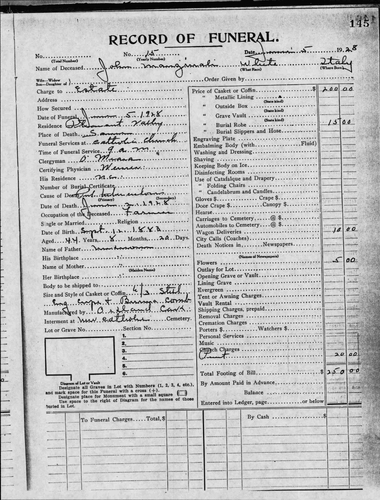 145
RECORD OF FUNERAL.
No. 15 Date 5 1928
(Total Number) (Yearly Number)
Name of Deceased John White Italy
(What Race) (What Place)
Wife-Widow
Son-Daughter of Order Given by
Charge to Estate
Address
How Secured
Date of Funeral 5 1928
Residence
Place of Death Same
Funeral Services at Catholic Church
Time of Funeral Service 9 a m
Clergyman O'Meara
Certifying Physician
His Residence N.O.
Number of Burial Certificate
Cause of Death
(Primary) (Secondary)
Date of Death 1928
Occupation of the Deceased Farmer
Single or Married Religion
Date of Birth Sept. 12 1883
Aged 44 Years 8 Months 20 Days
Name of Father unknown
His Birthplace
Name of Mother
(Maiden Name)
Her Birthplace
Body to be shipped to
Size and Style of Casket or Coffin 6/3
Manufactured by
Interment at New Catholic Cemetery.
Lot or Grave No. Section No.
1
2
3
4
5
6
Diagram of Lot or Vault
Designate all Graves in Lot with Numbers (1, 2, 3, 4, etc.) and mark space for this Funeral with a cross (+).
Designate place for Monument with a small square
Use space to the right of Diagram for the names of those buried in Lot.
Price of Casket or Coffin $200 00
" Metallic Lining
" Outside Box
" Grave Vault
" Burial Robe 15 00
" Burial Slippers and Hose
Engraving Plate
Embalming Body (with Fluid)
Washing and Dressing
Shaving
Keeping Body on Ice
Disinfecting Rooms
Use of Catafalque and Drapery
" Folding Chairs
" Candelabrum and Candles
Gloves $ Crape $
Door Crape $ Canopy $
Hearse
Carriages to Cemetery @ $
Automobiles to Cemetery @ $
Wagon Deliveries 10 00
City Calls (Coaches)
Death Notices in Newspapers
(Names of Newspapers)
Flowers 5 00
Outlay for Lot
Opening Grave or Vault
Lining Grave
Evergreen
Tent or Awning Charges
Vault Rental
Shipping Charges, prepaid
Removal Charges
Cremation Charges
Porters $ Watchers $
Personal Services
Music
Church Charges
20 00
Total Footing of Bill $250 00
By Amount Paid in Advance
Balance
Entered into Ledger, page or below.
To Funeral Charges Total, $ By Cash $